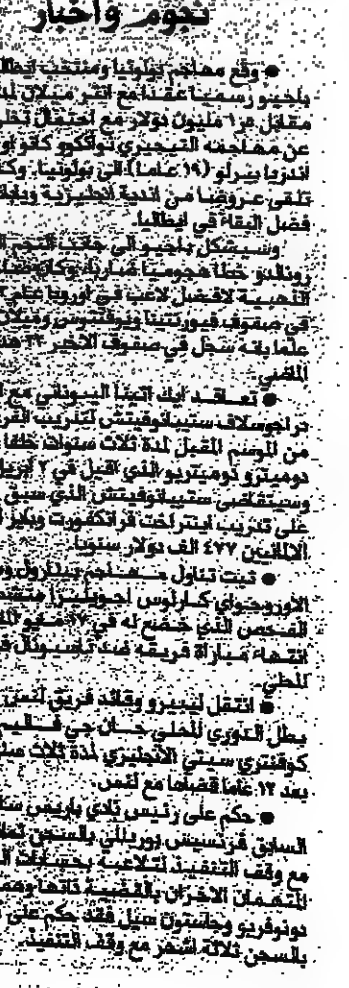 نجوم واخبار
● وقع مهاجم بولونيا ومنتخب ايطاليا
باجيو رسميا عقدا مع انتر ميلان
مقابل مليون دولار مع احتمال
عن مهاجمه النيجيري نوانكوو كانو
اندريا بيرلو (١٩ عاما) الى بولونيا. وكان
تلقى عروضا من اندية انجليزية
فضل البقاء في ايطاليا.
وسيشكل باجيو الى جانب النجم
رونالدو خطا هجوميا ضاربا، وكان
الذهبية لافضل لاعب في اوروبا
في صفوف فيورنتينا ويوفنتوس وميلان
علما بانه سجل في صفوف الاخير ٢٢
الماضي.
● تعاقد ايك اثينا اليوناني مع
دراجوسلاف ستيبانوفيتش لتدريب
من الموسم المقبل لمدة ثلاث سنوات خلفا
دوميترو دوميتريو الذي اقيل في ٢ ابريل
وسيتقاضى ستيبانوفيتش الذي سبق
على تدريب اينتراخت فرانكفورت وباير
الالمانيين ٤٧٧ الف دولار سنويا.
● ثبت تناول مهاجم بينارول
الاوروجواي كارلوس
الفحص الذي خضع له في ١٧
انتهاء مباراة فريقه ضد ناسيونال
المحلي.
● انتقل ليبيرو وقائد فريق لنس
بطل الدوري المحلي جان جي
كوفنتري سيتي الانجليزي لمدة ثلاث
بعد ١٢ عاما قضاها مع لنس.
● حكم على رئيس نادي باريس
السابق فرنسيس بوريللي بالسجن
مع وقف التنفيذ لتلاعبه بحسابات
المتهمان الاخران بالقضية ذاتها وهما
دونوفريو وجاستون سيل فقد حكم على
بالسجن ثلاثة اشهر مع وقف التنفيذ.